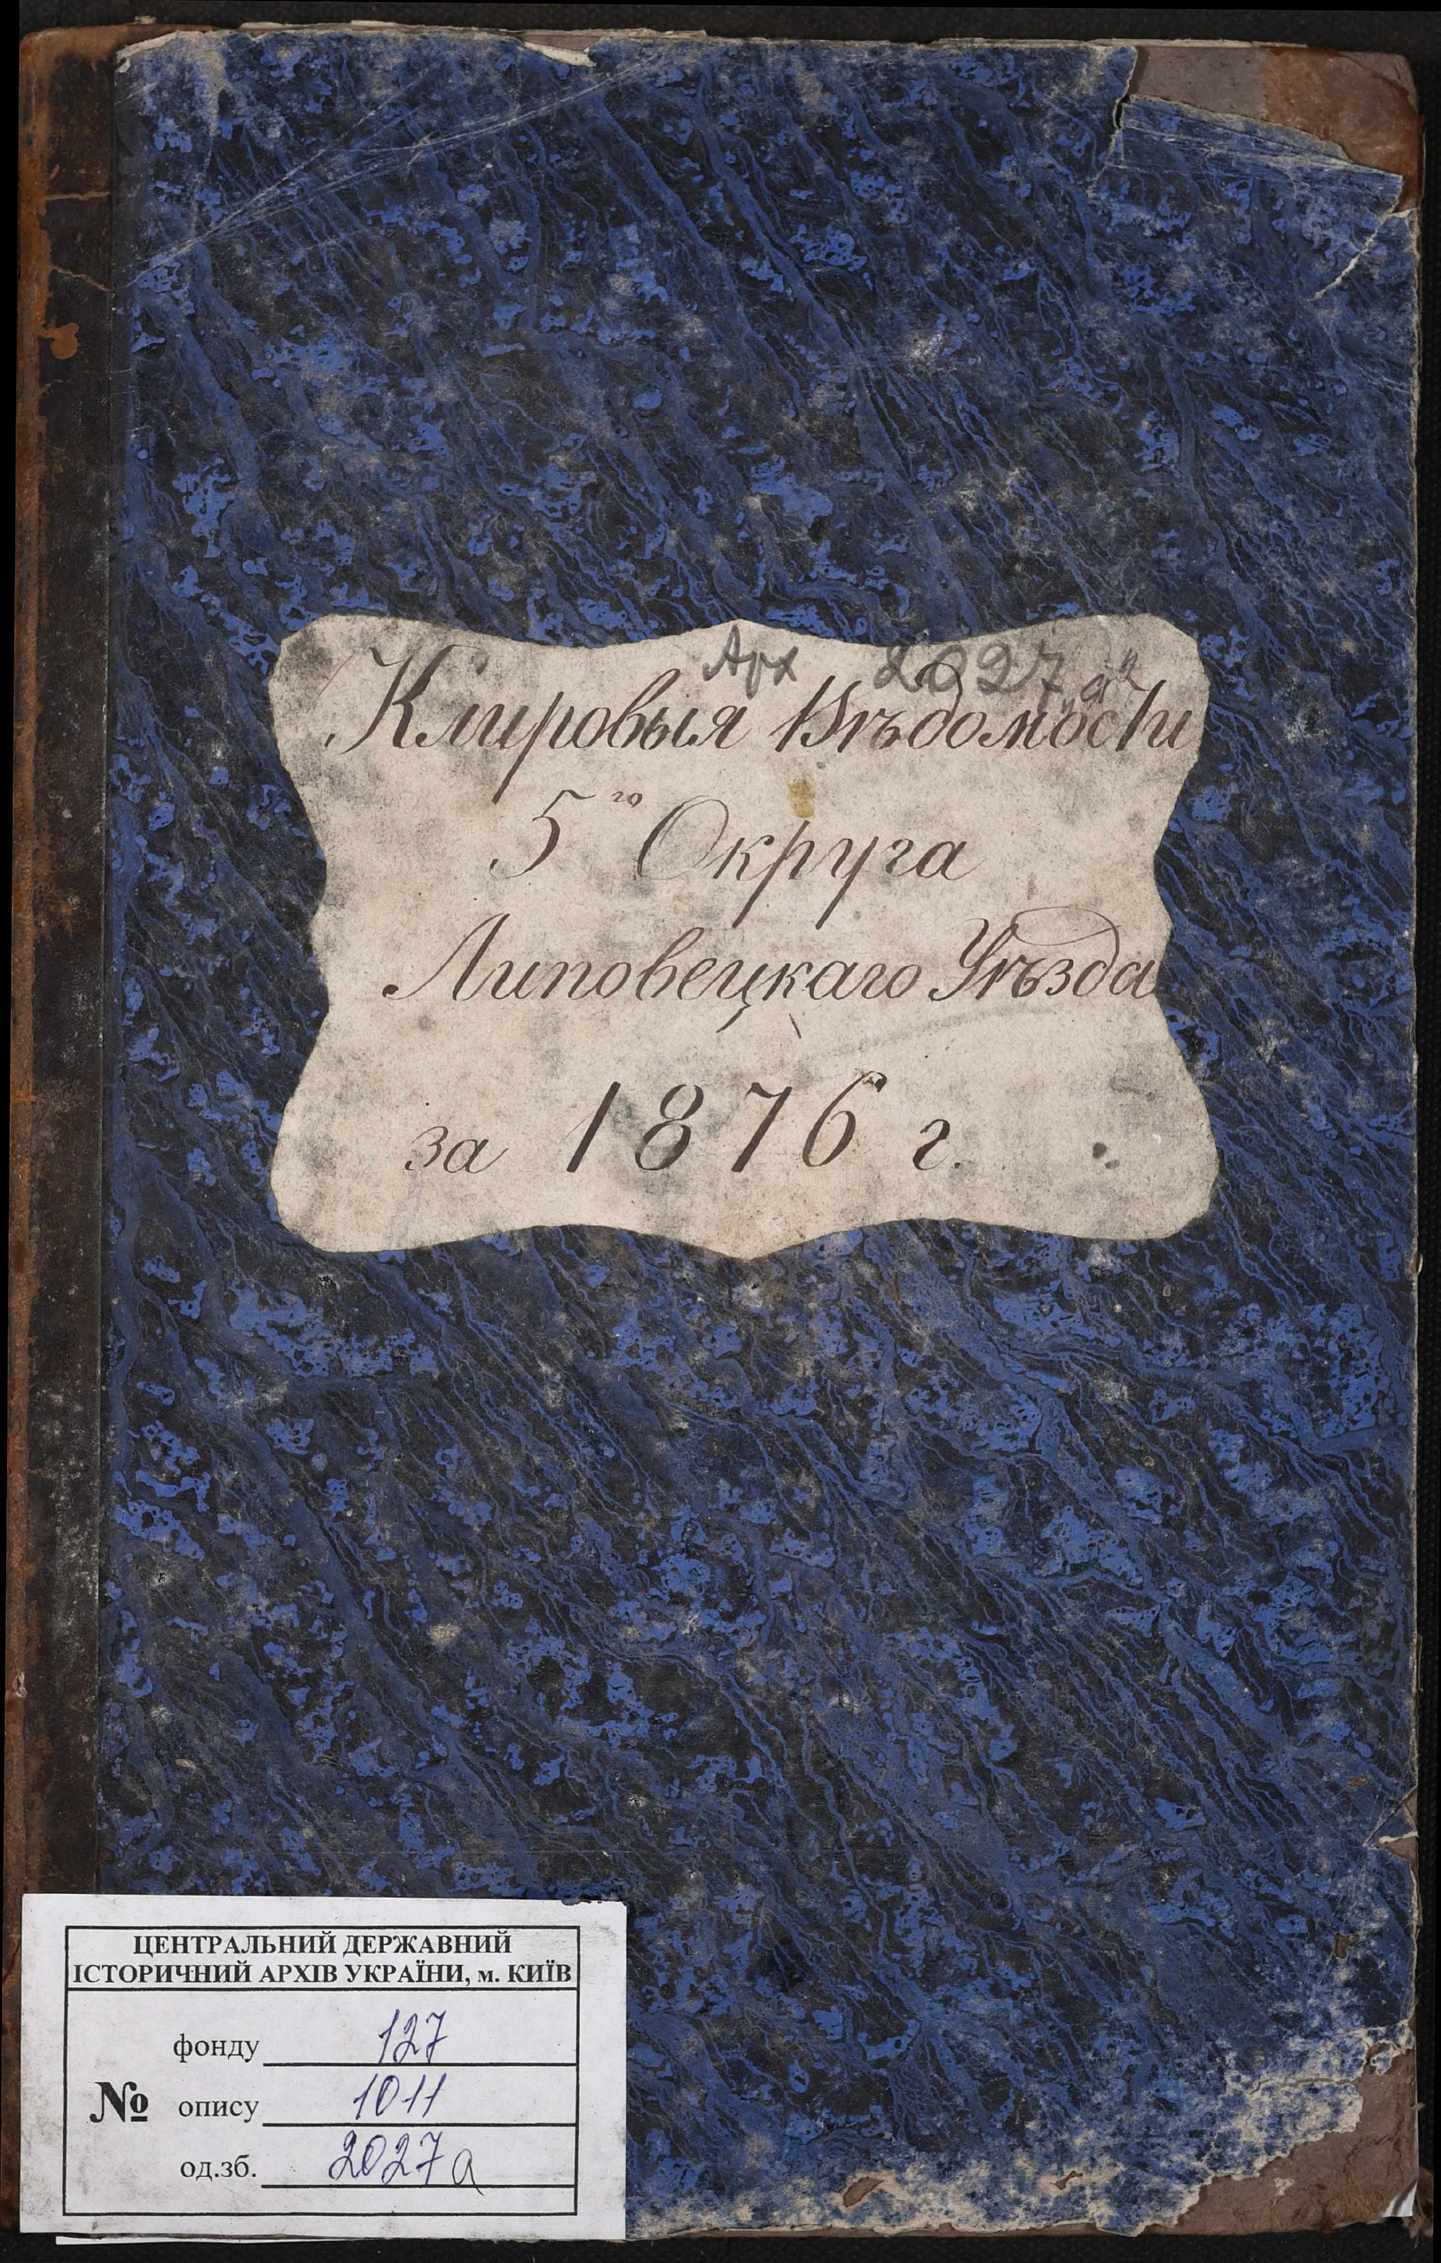 Арх 2027 а
Клировыя Вѣдомости
5го Округа
Липовецкаго Уѣзда
за 1876 г.
ЦЕНТРАЛЬНИЙ ДЕРЖАВНИЙ
ІСТОРИЧНИЙ АРХІВ УКРАЇНИ, м. КИЇВ
фонду 127
№ опису 1011
од.зб. 2027а